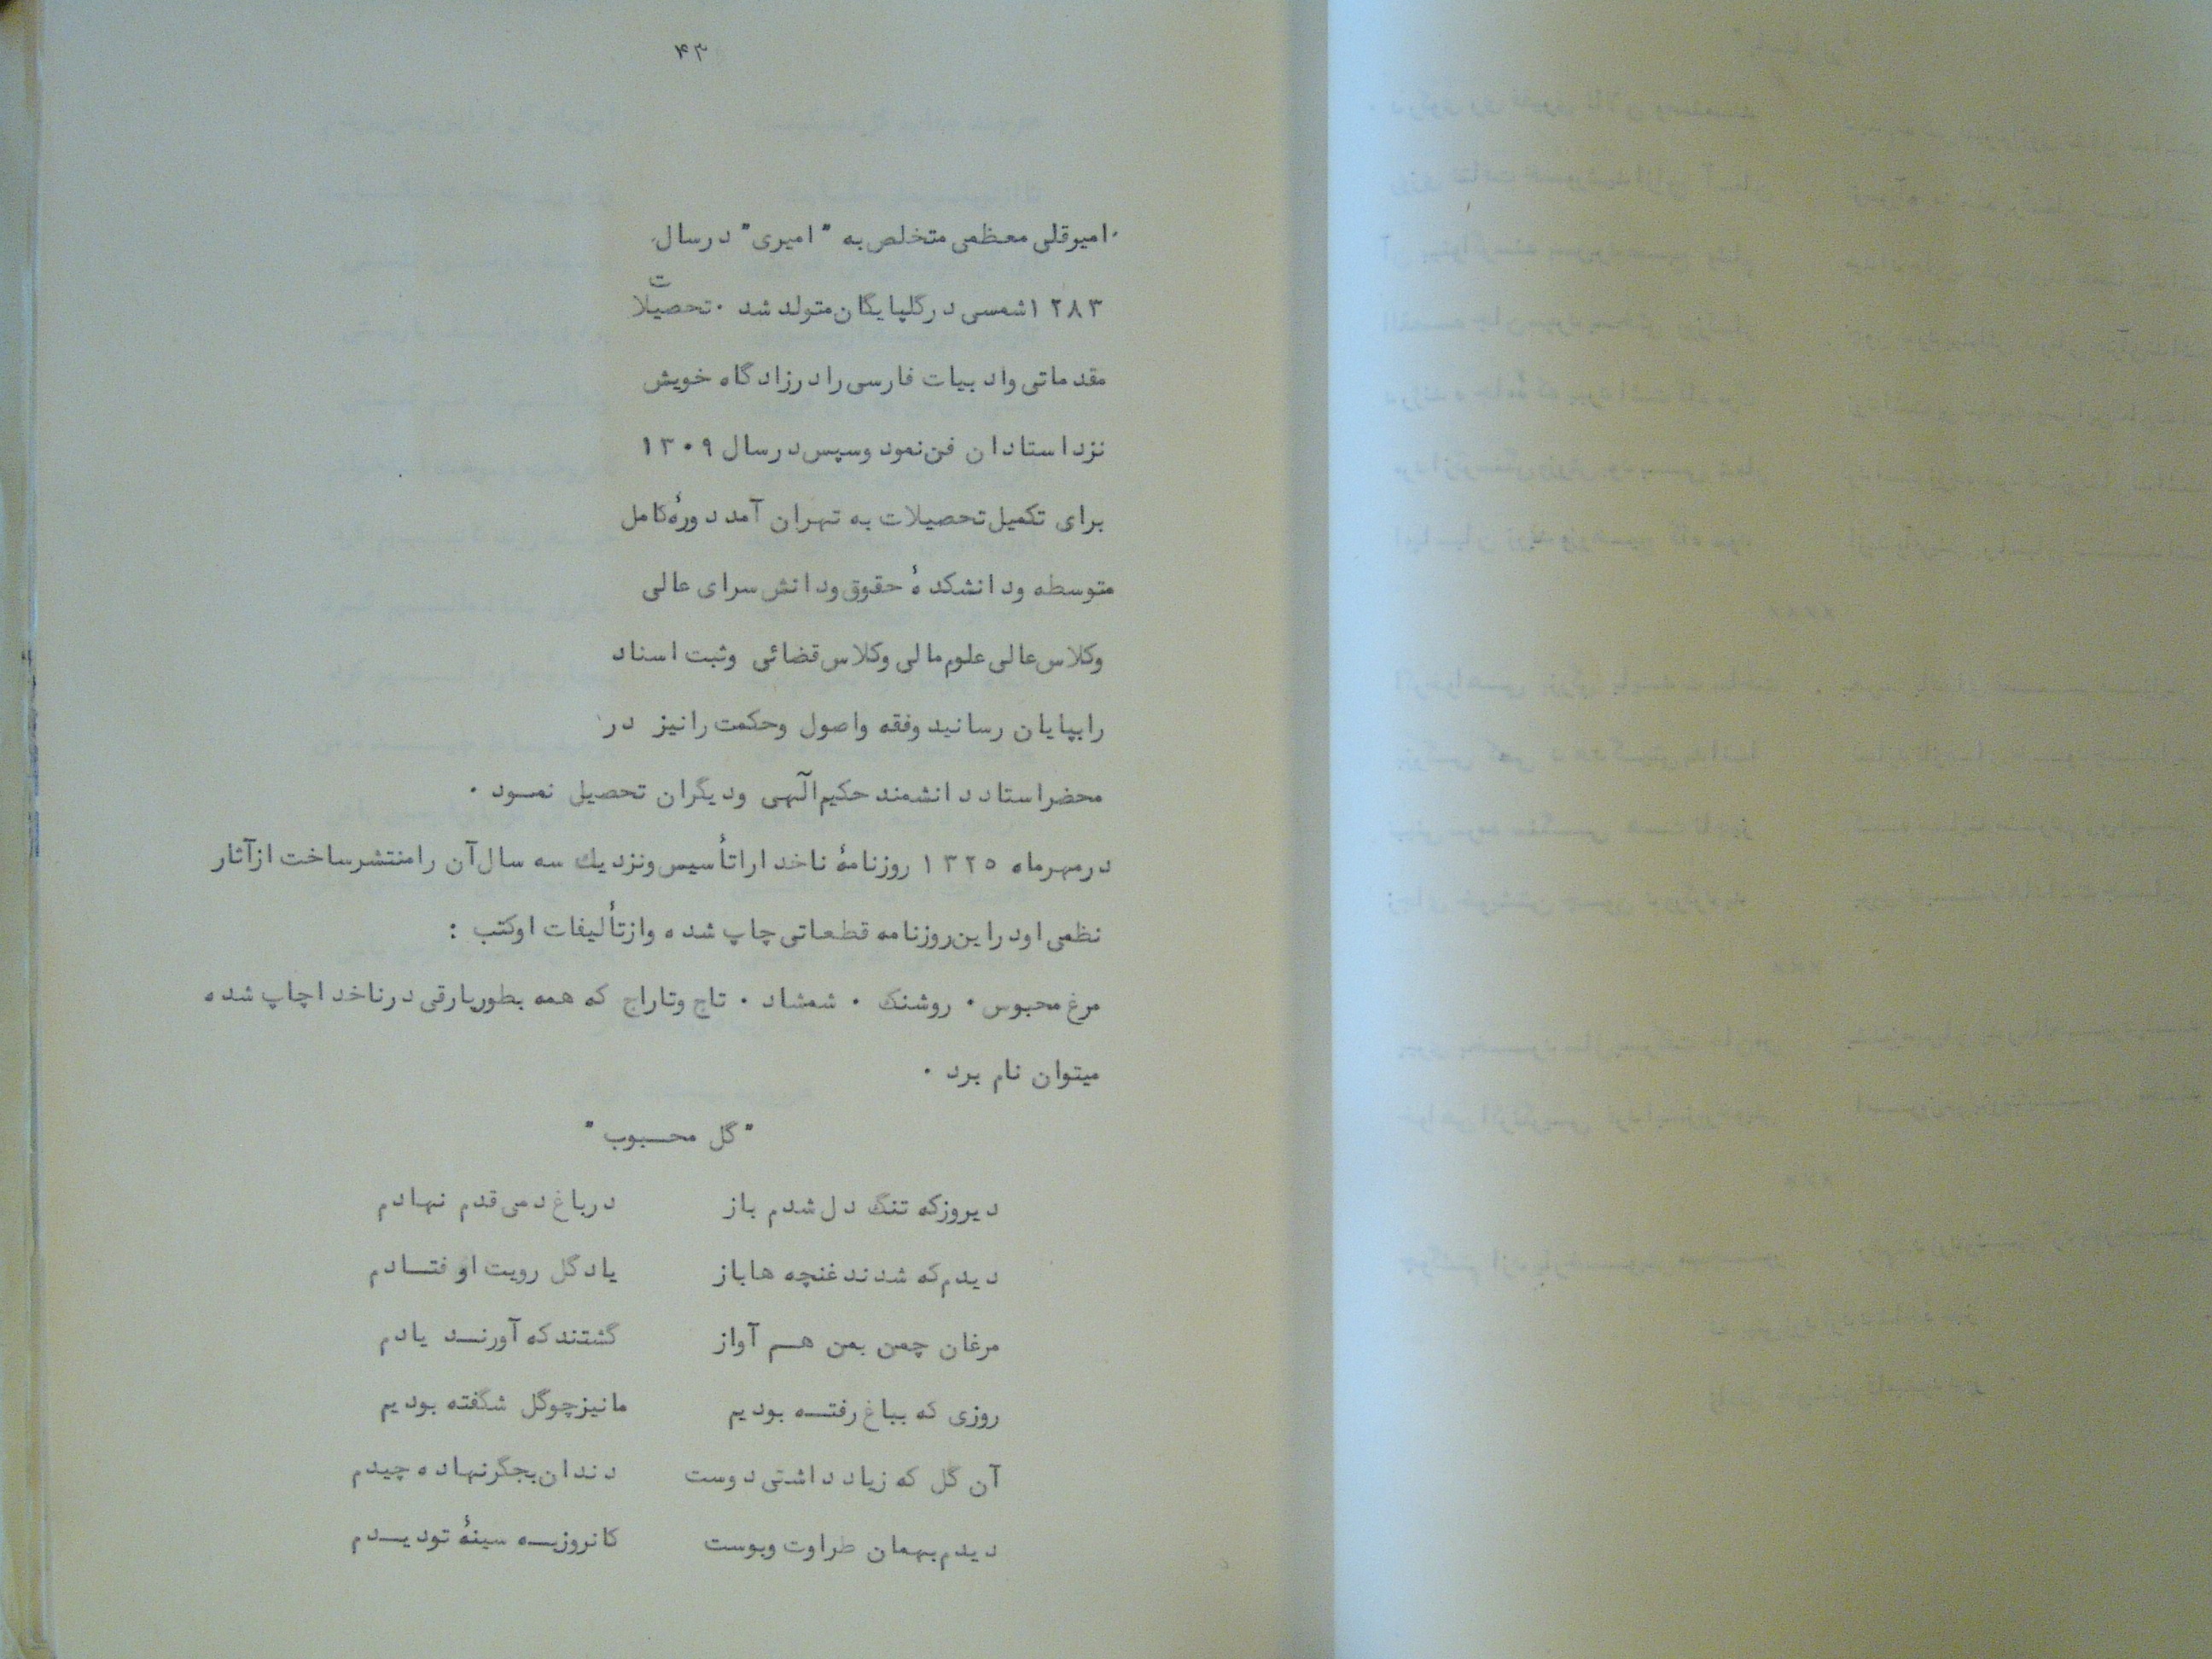 ۴۳
امیرقلی معظمی متخلص به " امیری" درسال
۱۲۸۳ شمسی درگلپایگان متولد شد ۰ تحصیلات
مقدماتی وادبیات فارسی رادرزادگاه خویش
نزد استادان فن نمود وسپس درسال ۱۳۰۹
برای تکمیل تحصیلات به تهران آمد دورهٔ کامل
متوسطه ودانشکدهٔ حقوق ودانش سرای عالی
وکلاس عالی علوم مالی وکلاس قضائی وثبت اسناد
رابپایان رسانید وفقه واصول وحکمت رانیز در
محضراستاد دانشمند حکیم آلهی ودیگران تحصیل نمود ۰
درمهرماه ۱۳۲۵ روزنامهٔ ناخدا راتأسیس ونزدیك سه سال آن رامنتشرساخت ازآثار
نظمی اودراین روزنامه قطعاتی چاپ شده وازتألیفات اوکتب :
مرغ محبوس ۰ روشنک ۰ شمشاد ۰ تاج وتاراج که همه بطورپارقی درناخدا چاپ شده
میتوان نام برد ۰
" گل محبوب "
دیروزکه تنگ دل شدم باز درباغ دمی قدم نهادم
دیدم که شدند غنچه هاباز یادگل رویت اوفتادم
مرغان چمن بمن هم آواز گشتند که آورند یادم
روزی که بباغ رفته بودیم مانیزچوگل شگفته بودیم
آن گل که زیاد داشتی دوست دندان بجگرنهاده چیدم
دیدم بهمان طراوت وبوست کانروزبه سینهٔ تودیدم